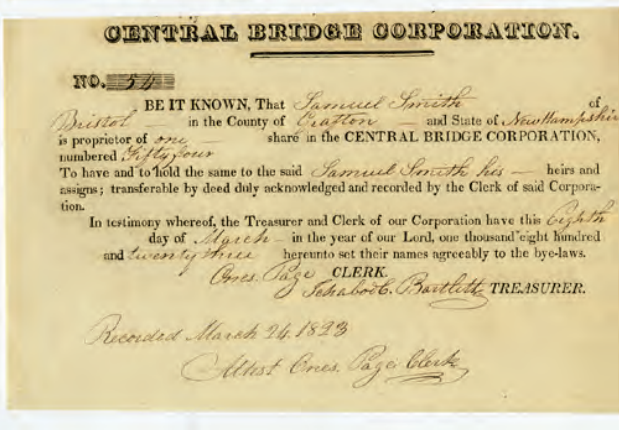 CENTRAL BRIDGE CORPORATION.
NO. 54
BE IT KNOWN, That Samuel Smith of
Bristol — in the County of Gratton — and State of New Hampshire
is proprietor of one — share in the CENTRAL BRIDGE CORPORATION,
numbered Fifty four
To have and to hold the same to the said Samuel Smith his — heirs and
assigns; transferable by deed duly acknowledged and recorded by the Clerk of said Corpora-
tion.
In testimony whereof, the Treasurer and Clerk of our Corporation have this Eighth
day of March — in the year of our Lord, one thousand eight hundred
and twenty three hereunto set their names agreeably to the bye-laws.
Ones. Page CLERK.
Ichabod C. Bartlett TREASURER.
Recorded March 24, 1823
Attest Ones. Page Clerk